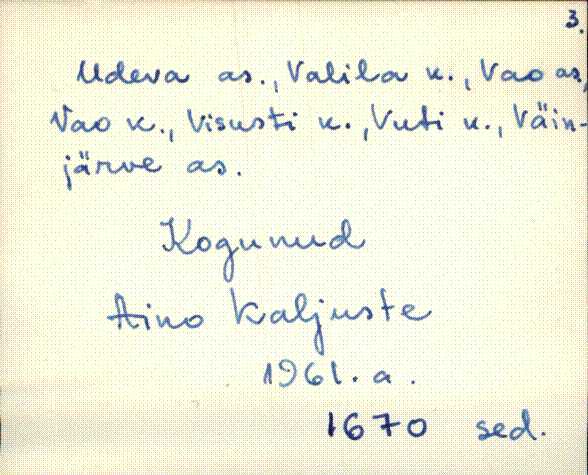 3.
Udeva as., Valila k., Vao as,
Vao k., Visusti k., Vuti k., Väin-
järve as.
Kogunud
Aino Kaljuste
1961. a.
1670 sed.